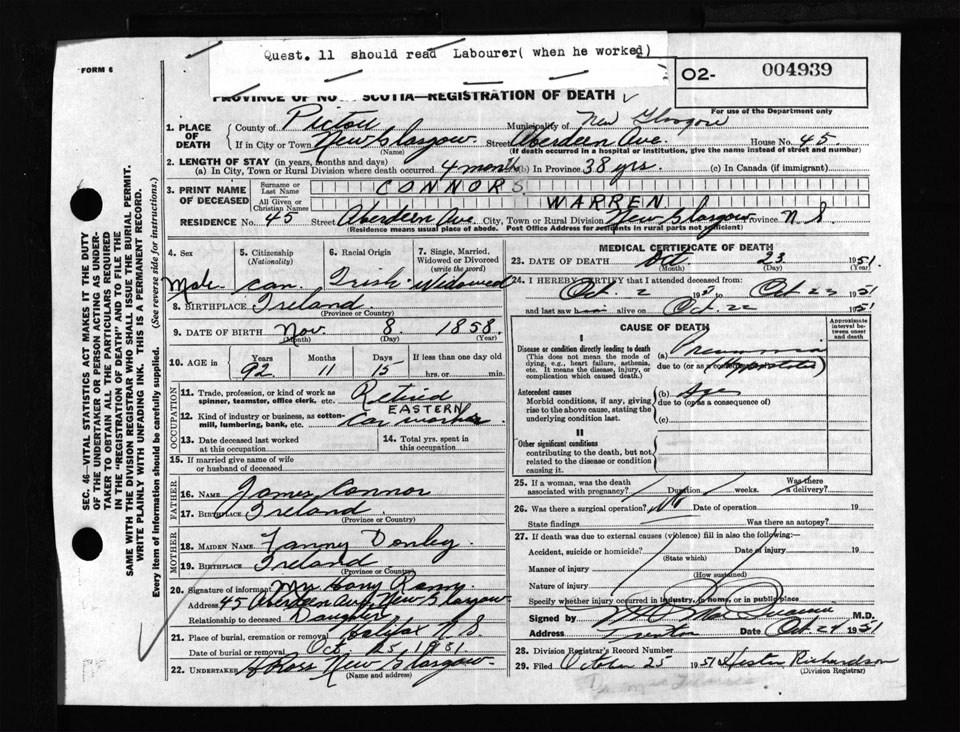 Quest. 11 should read Labourer( when he worked)
FORM 6
O2- 004939
PROVINCE OF NOVA SCOTIA—REGISTRATION OF DEATH
For use of the Department only
1. PLACE OF DEATH County of Pictou Municipality of New Glasgow
If in City or Town New Glasgow. Street Aberdeen Ave House No. 45.
(Name) (If death occurred in a hospital or institution, give the name instead of street and number)
2. LENGTH OF STAY (in years, months and days)
(a) In City, Town or Rural Division where death occurred 4 month (b) In Province 38 yrs. (c) In Canada (if immigrant)
3. PRINT NAME OF DECEASED Surname or Last Name CONNORS
All Given or Christian Names WARREN
RESIDENCE No. 45 Street Aberdeen Ave City, Town or Rural Division New Glasgow Province N S
(Residence means usual place of abode. Post Office Address for residents in rural parts not sufficient)
4. Sex Male
5. Citizenship (Nationality) Can.
6. Racial Origin Irish
7. Single, Married, Widowed or Divorced (write the word) Widowed
8. BIRTHPLACE Ireland
(Province or Country)
9. DATE OF BIRTH Nov. 8. 1858
(Month) (Day) (Year)
10. AGE in Years 92 Months 11 Days 15 If less than one day old
hrs. or min.
OCCUPATION
11. Trade, profession, or kind of work as spinner, teamster, office clerk, etc. Retired
12. Kind of industry or business, as cotton-mill, lumbering, bank, etc. EASTERN Car works
13. Date deceased last worked at this occupation
14. Total yrs. spent in this occupation
15. If married give name of wife or husband of deceased
FATHER
16. NAME James Connor
17. BIRTHPLACE Ireland
(Province or Country)
MOTHER
18. MAIDEN NAME Fanny Donley
19. BIRTHPLACE Ireland
(Province or Country)
20. Signature of informant Mrs
Address 45 Aberdeen Ave, New Glasgow
Relationship to deceased Daughter
21. Place of burial, cremation or removal Halifax N S.
Date of burial or removal Oct 25 1951
22. UNDERTAKER Ross New Glasgow
(Name and address)
MEDICAL CERTIFICATE OF DEATH
23. DATE OF DEATH Oct 23 1951
(Month) (Day) (Year)
24. I HEREBY CERTIFY that I attended deceased from:
Oct. 2 1951 to Oct 23 1951
and last saw him alive on Oct. 22 1951
CAUSE OF DEATH
Approximate interval between onset and death
I
Disease or condition directly leading to death (a) Pneumonia
(This does not mean the mode of dying, e.g., heart failure, asthenia, etc. It means the disease, injury, or complication which caused death.)
due to (or as a consequence of) (Hypostatic)
Antecedent causes (b) Age
Morbid conditions, if any, giving rise to the above cause, stating the underlying condition last.
due to (or as a consequence of)
(c)
II
Other significant conditions
contributing to the death, but not related to the disease or condition causing it.
25. If a woman, was the death associated with pregnancy? Duration weeks. Was there a delivery?
26. Was there a surgical operation? No Date of operation 19
State findings Was there an autopsy?
27. If death was due to external causes (violence) fill in also the following:—
Accident, suicide or homicide? Date of injury 19
(State which)
Manner of injury
(How sustained)
Nature of injury
Specify whether injury occurred in industry, in home, or in public place
Signed by M.D.
Address Trenton Date Oct 24 1951
28. Division Registrar's Record Number
29. Filed October 25 1951 Hester Richardson
(Division Registrar)
SEC. 46—VITAL STATISTICS ACT MAKES IT THE DUTY
OF THE UNDERTAKER OR PERSON ACTING AS UNDER-
TAKER TO OBTAIN ALL THE PARTICULARS REQUIRED
IN THE "REGISTRATION OF DEATH" AND TO FILE THE
SAME WITH THE DIVISION REGISTRAR WHO SHALL ISSUE THE BURIAL PERMIT.
WRITE PLAINLY WITH UNFADING INK. THIS IS A PERMANENT RECORD.
Every item of information should be carefully supplied. (See reverse side for instructions.)